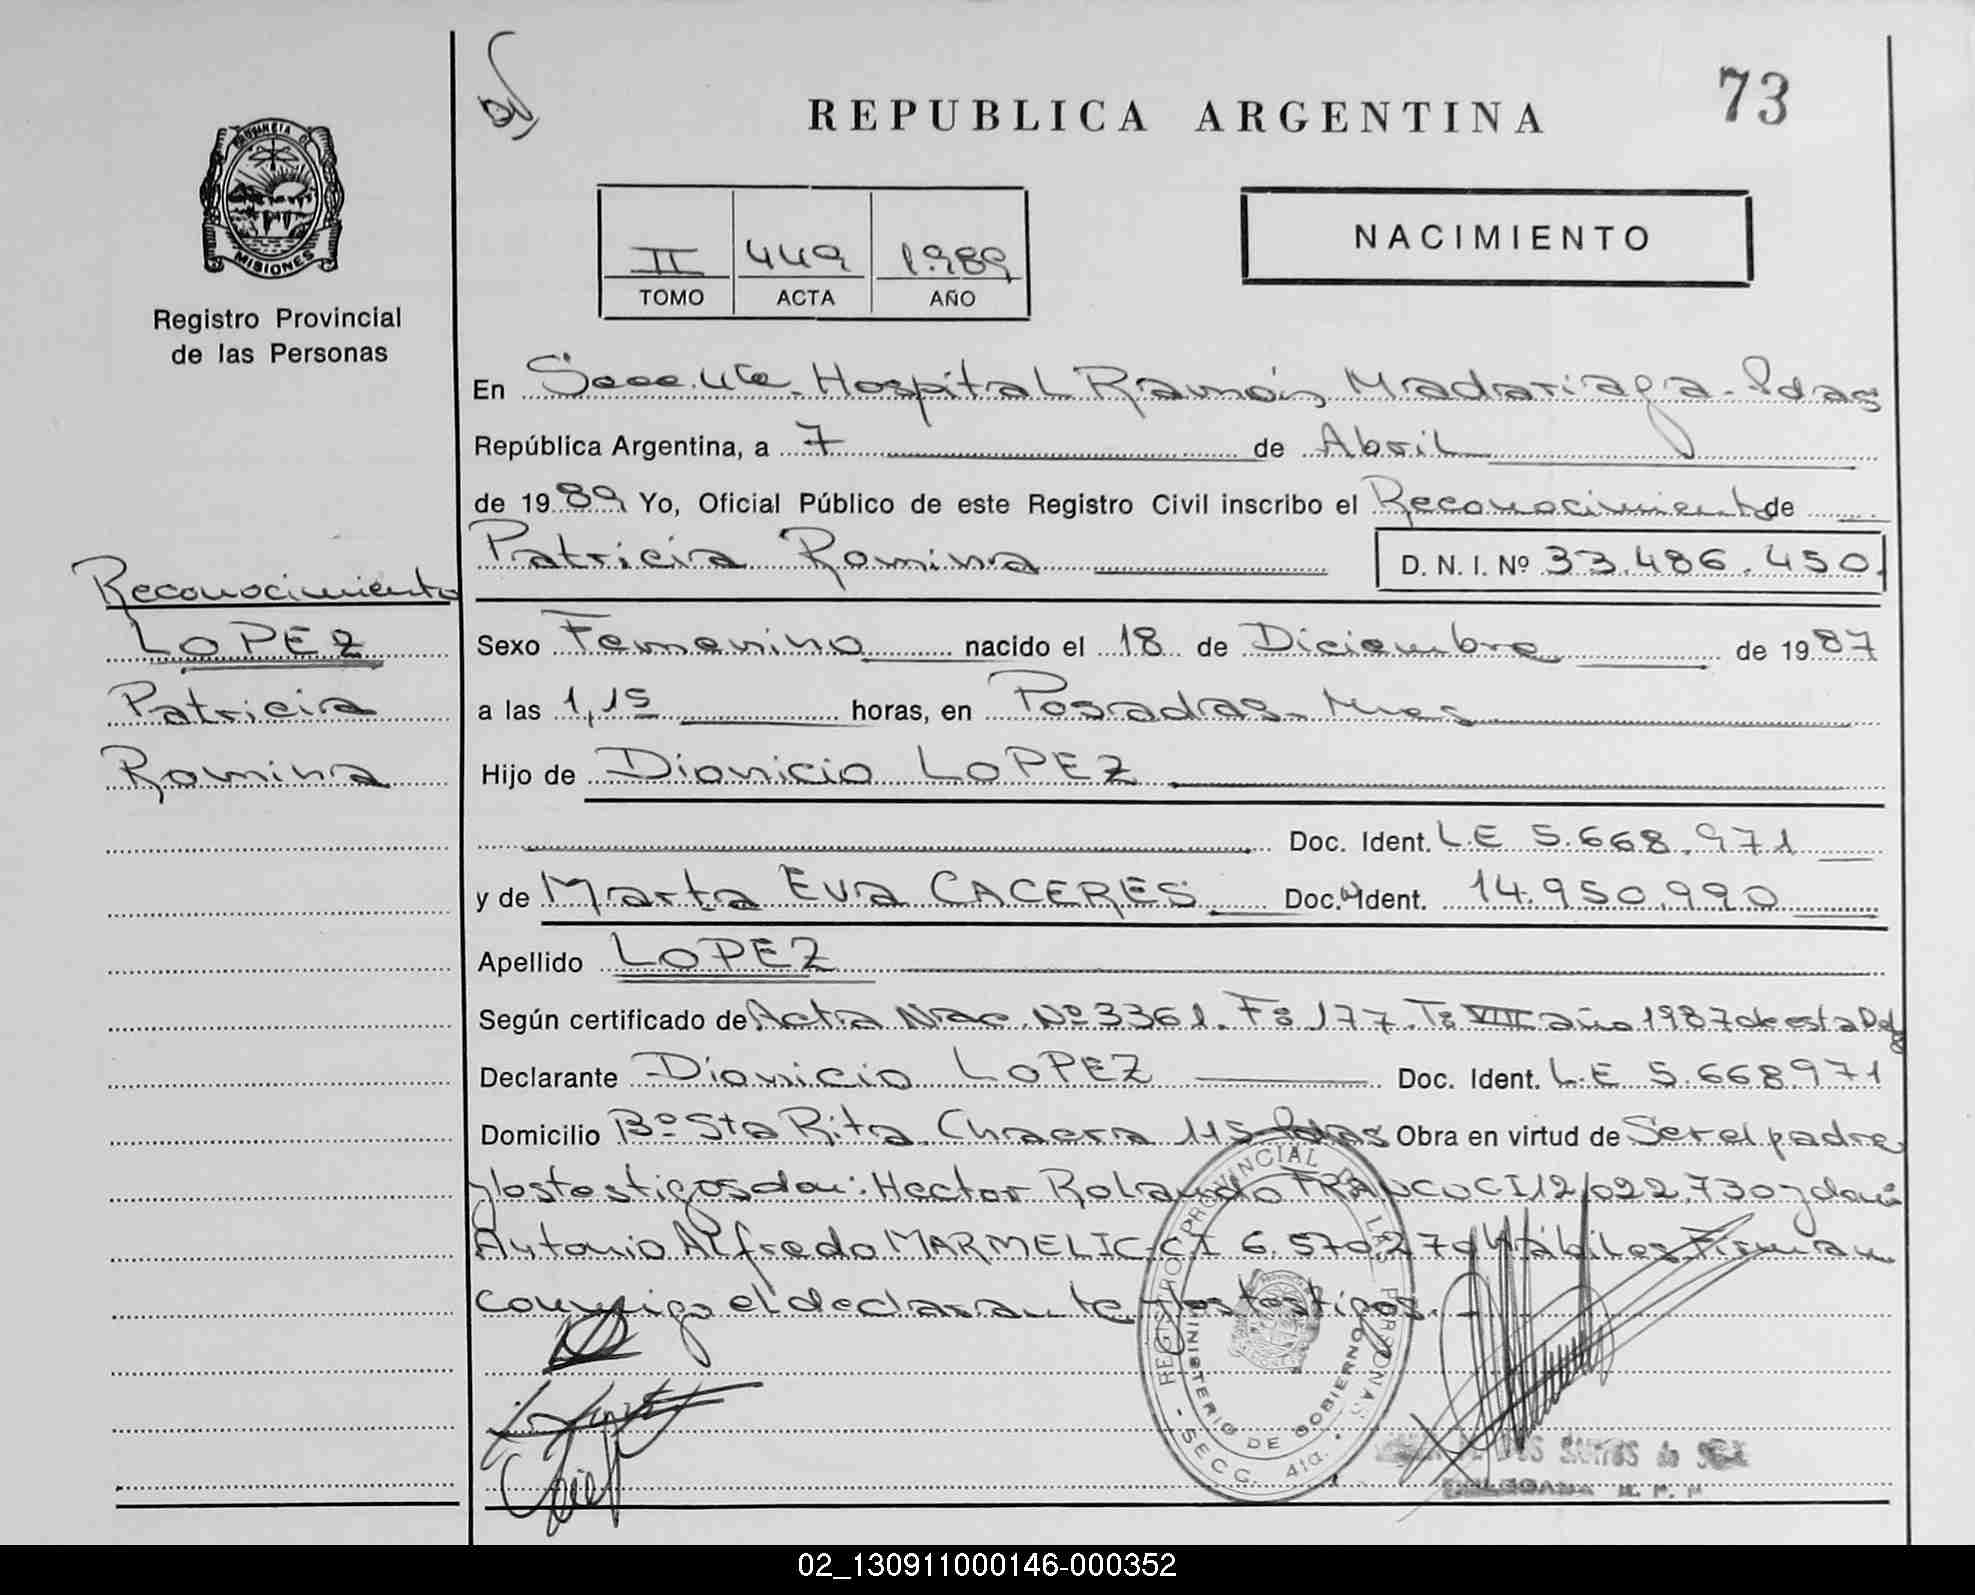 73
REPUBLICA ARGENTINA
PROVINCIA DE
MISIONES
Registro Provincial
de las Personas
II 449 1.989
TOMO ACTA AÑO
NACIMIENTO
En Secc. 4ta. Hospital Ramón Madariaga - Pdas
República Argentina, a 7 de Abril
de 1989 Yo, Oficial Público de este Registro Civil inscribo el Reconocimiento de
Patricia Romina D. N. I. Nº 33.486.450
Reconocimiento
LOPEZ
Patricia
Romina
Sexo Femenino nacido el 18 de Diciembre de 1987
a las 1,15 horas, en Posadas - Mnes
Hijo de Dionicio LOPEZ
Doc. Ident. L.E 5.668.971
y de Marta Eva CACERES Doc. Ident. 14.950.990
Apellido LOPEZ
Según certificado de Acta Nac. Nº 3361. Fº 177. Tº VIII año 1987 de esta Del
Declarante Dionicio LOPEZ Doc. Ident. L.E 5.668.971
Domicilio Bº Sta Rita. Chacra 115 Pdas Obra en virtud de Ser el padre
y los testigos don: Hector Rolando CI 12.022.730 y don
Antonio Alfredo MARMELIC CI 6.570.279 Hábiles Firman
conmigo el declarante y los testigos. -
REGISTRO PROVINCIAL DE LAS PERSONAS
MINISTERIO DE GOBIERNO
- SECC. 4ta. -
DOS SANTOS de
DELEGADA R. P. P.
02_130911000146-000352